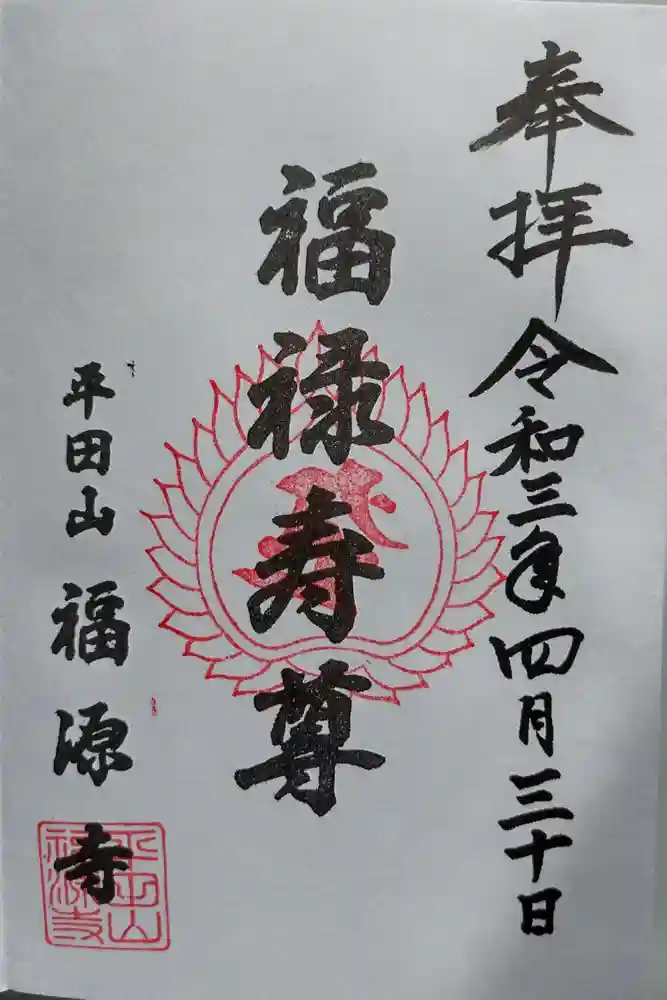 奉拝 令和三年四月三十日
福禄寿尊
平田山 福源寺
平田山
福源寺